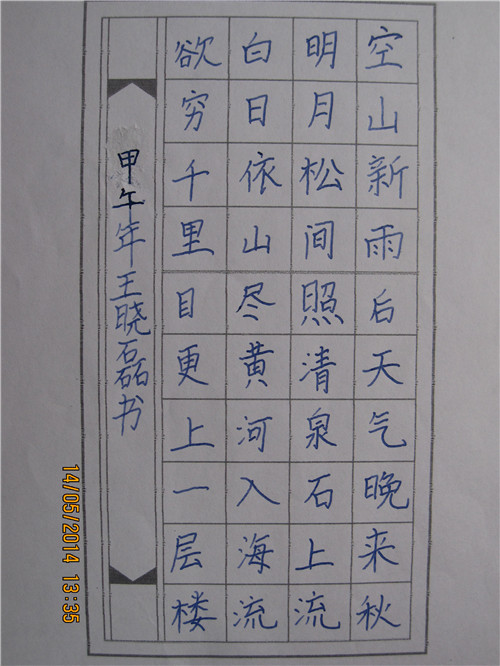 空山新雨后天气晚来秋
明月松间照清泉石上流
白日依山尽黄河入海流
欲穷千里目更上一层楼
甲午年王晓磊书
14/05/2014 13:35